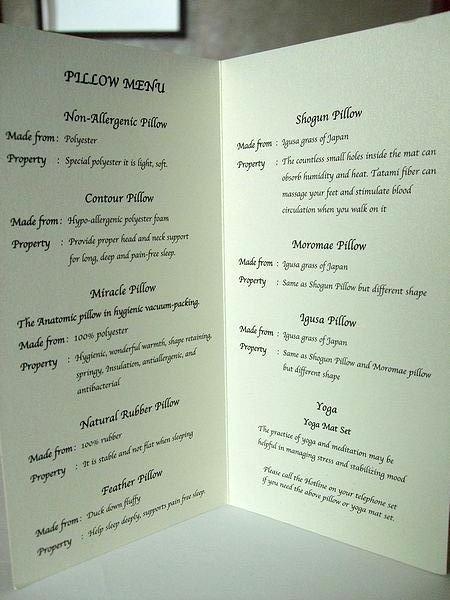 PILLOW MENU
Non-Allergenic Pillow
Made from : Polyester
Property : Special polyester it is light, soft.
Contour Pillow
Made from : Hypo-allergenic polyester foam
Property : Provide proper head and neck support
for long, deep and pain-free sleep.
Miracle Pillow
The Anatomic pillow in hygienic vacuum-packing.
Made from : 100% polyester
Property : Hygienic, wonderful warmth, shape retaining,
springy, Insulation, antiallergenic, and
antibacterial
Natural Rubber Pillow
Made from : 100% rubber
Property : It is stable and not flat when sleeping
Feather Pillow
Made from : Duck down fluffy
Property : Help sleep deeply, supports pain free sleep.
Shogun Pillow
Made from : Igusa grass of Japan
Property : The countless small holes inside the mat can
absorb humidity and heat. Tatami fiber can
massage your feet and stimulate blood
circulation when you walk on it
Moromae Pillow
Made from : Igusa grass of Japan
Property : Same as Shogun Pillow but different shape
Igusa Pillow
Made from : Igusa grass of Japan
Property : Same as Shogun Pillow and Moromae pillow
but different shape
Yoga
Yoga Mat Set
The practice of yoga and meditation may be
helpful in managing stress and stabilizing mood
Please call the Hotline on your telephone set
if you need the above pillow or yoga mat set.